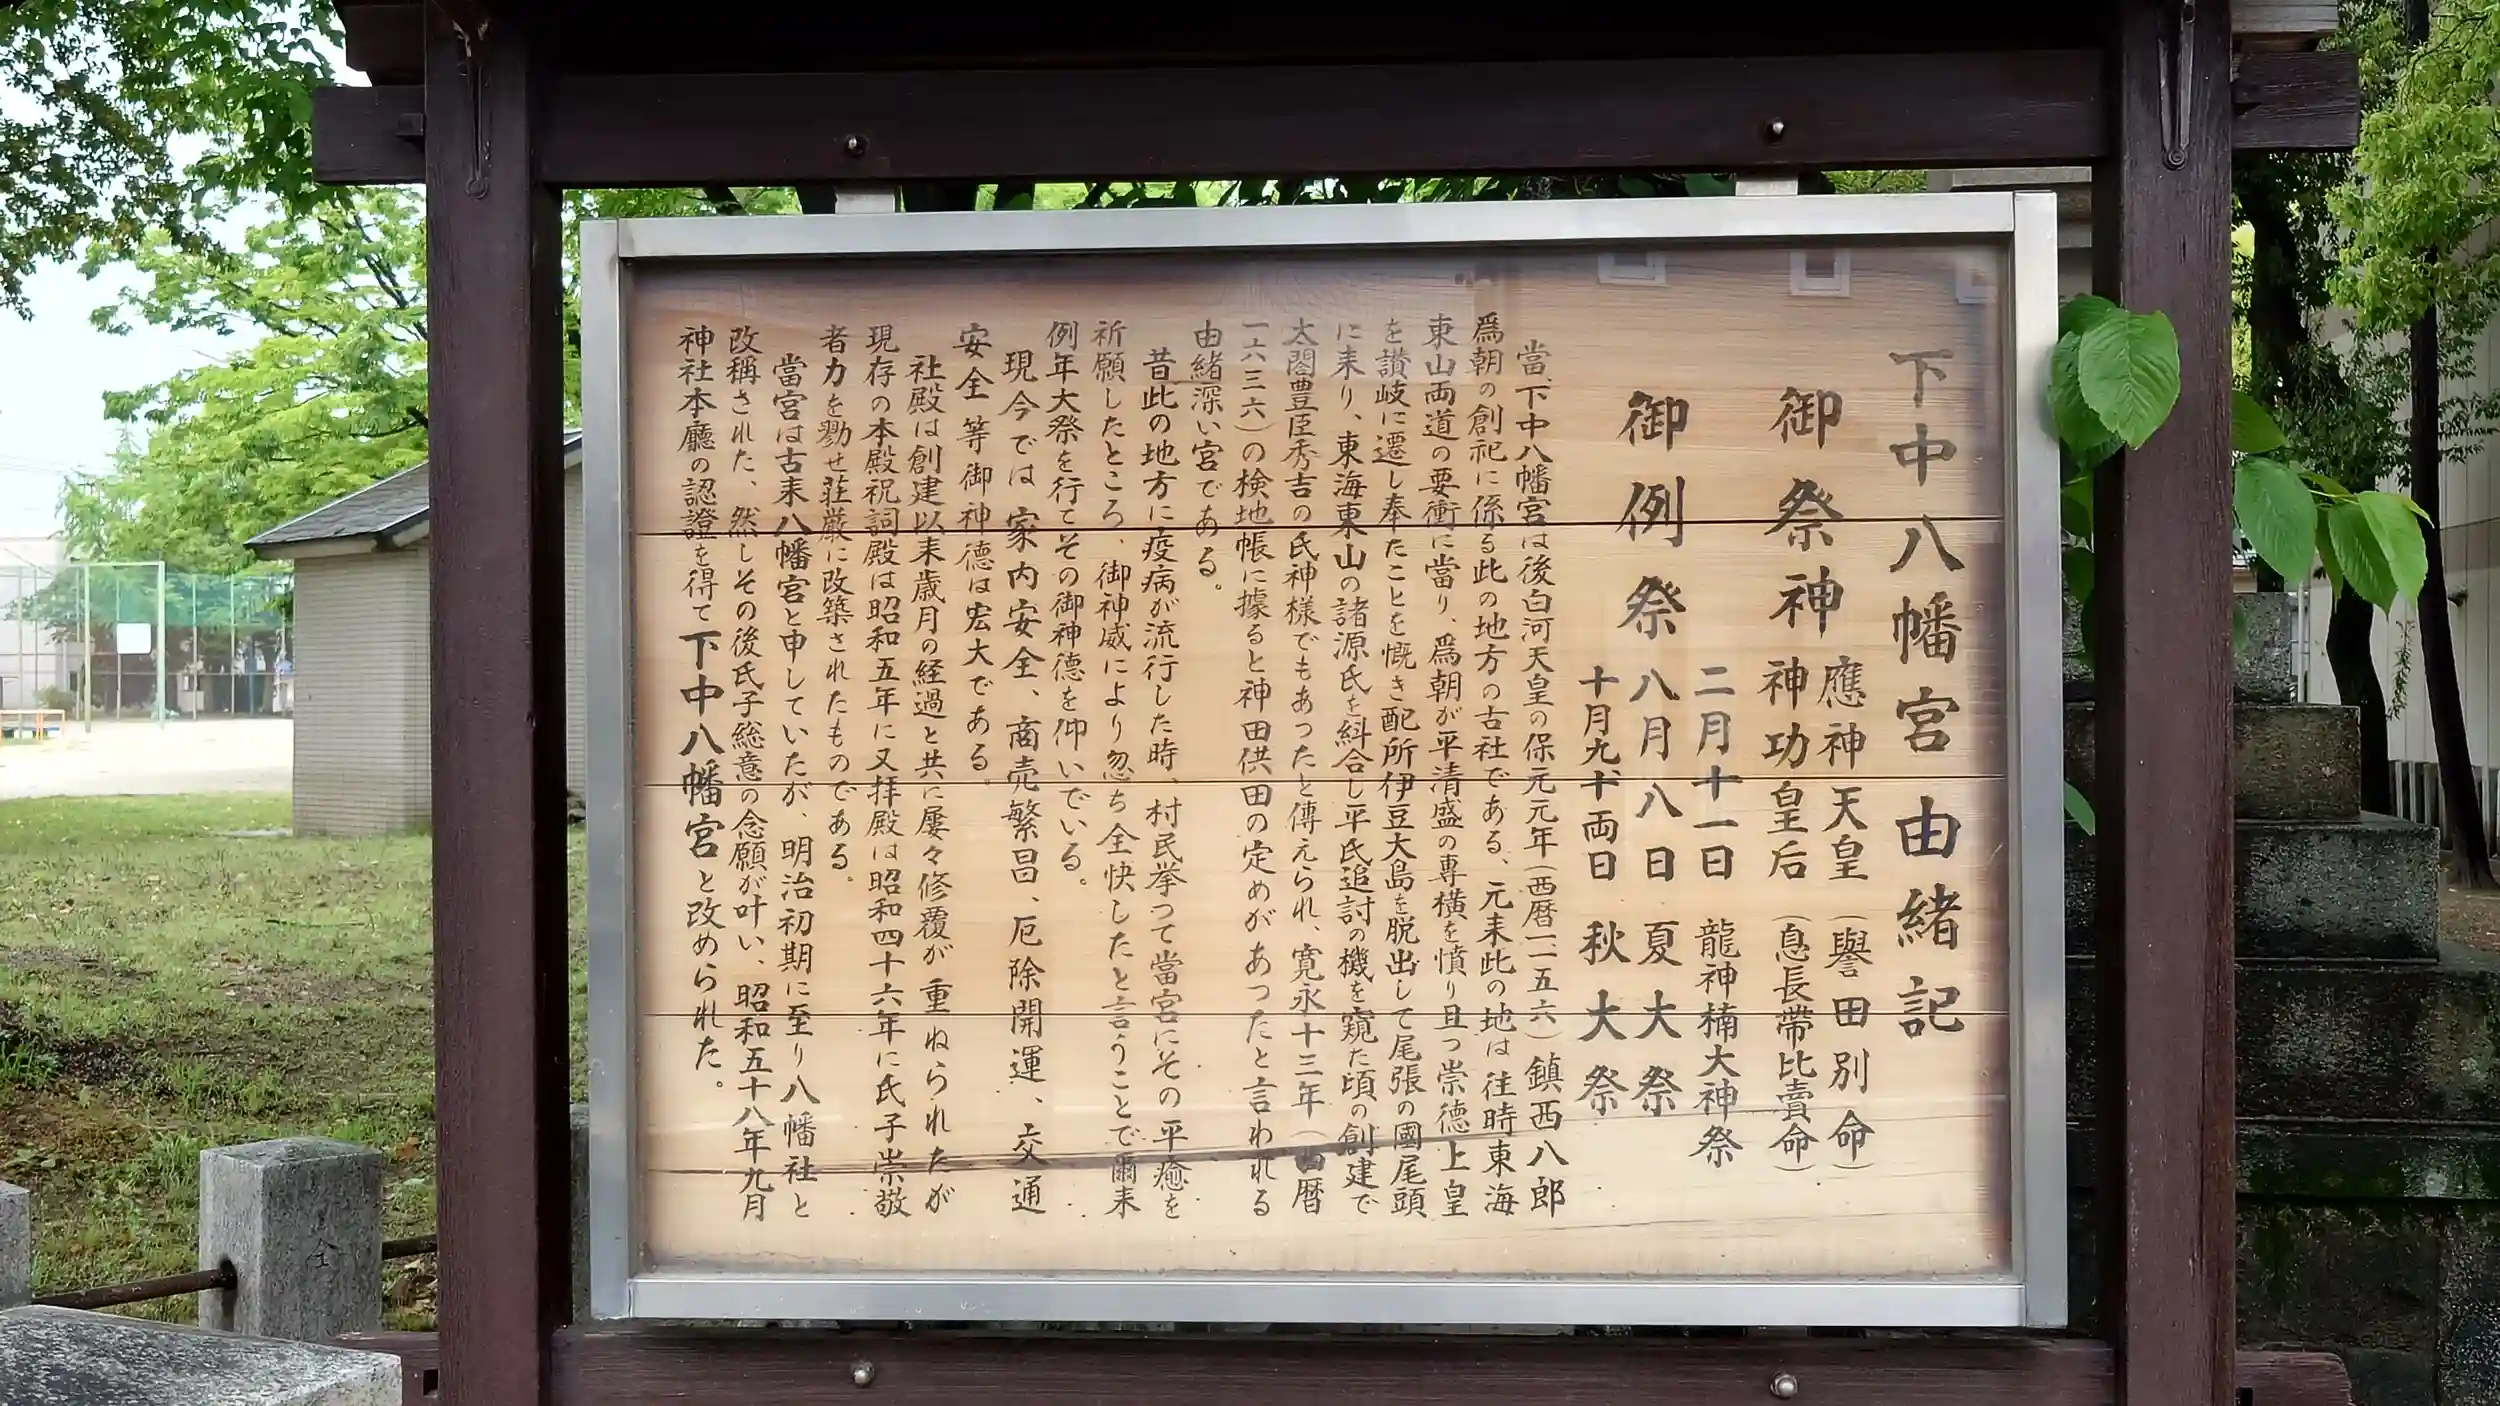 下中八幡宮由緒記
御祭神
應神天皇（譽田別命）
神功皇后（息長帶比賣命）
御例祭
二月十一日 龍神楠大神祭
八月八日 夏大祭
十月九十両日 秋大祭
當、下中八幡宮は後白河天皇の保元元年（西暦一一五六）鎮西八郎
爲朝の創祀に係る此の地方の古社である、元来此の地は往時東海
東山両道の要衝に當り、爲朝が平清盛の専横を憤り且つ崇徳上皇
を讃岐に遷し奉たことを慨き配所伊豆大島を脱出して尾張の國尾頭
に来り、東海東山の諸源氏を糾合し平氏追討の機を窺た頃の創建で
太閤豊臣秀吉の氏神様でもあつたと傳えられ、寛永十三年（西暦
一六三六）の検地帳に據ると神田供田の定めがあつたと言われる
由緒深い宮である。
昔此の地方に疫病が流行した時、村民挙つて當宮にその平癒を
祈願したところ、御神威により忽ち全快したと言うことで爾来
例年大祭を行てその御神徳を仰いでいる。
現今では家内安全、商売繁昌、厄除開運、交通
安全 等御神徳は宏大である。
社殿は創建以来歳月の経過と共に屡々修覆が重ねられたが
現存の本殿祝詞殿は昭和五年に又拝殿は昭和四十六年に氏子崇敬
者力を勠せ荘厳に改築されたものである。
當宮は古来八幡宮と申していたが、明治初期に至り八幡社と
改稱された、然しその後氏子総意の念願が叶い、昭和五十八年九月
神社本廳の認證を得て下中八幡宮と改められた。